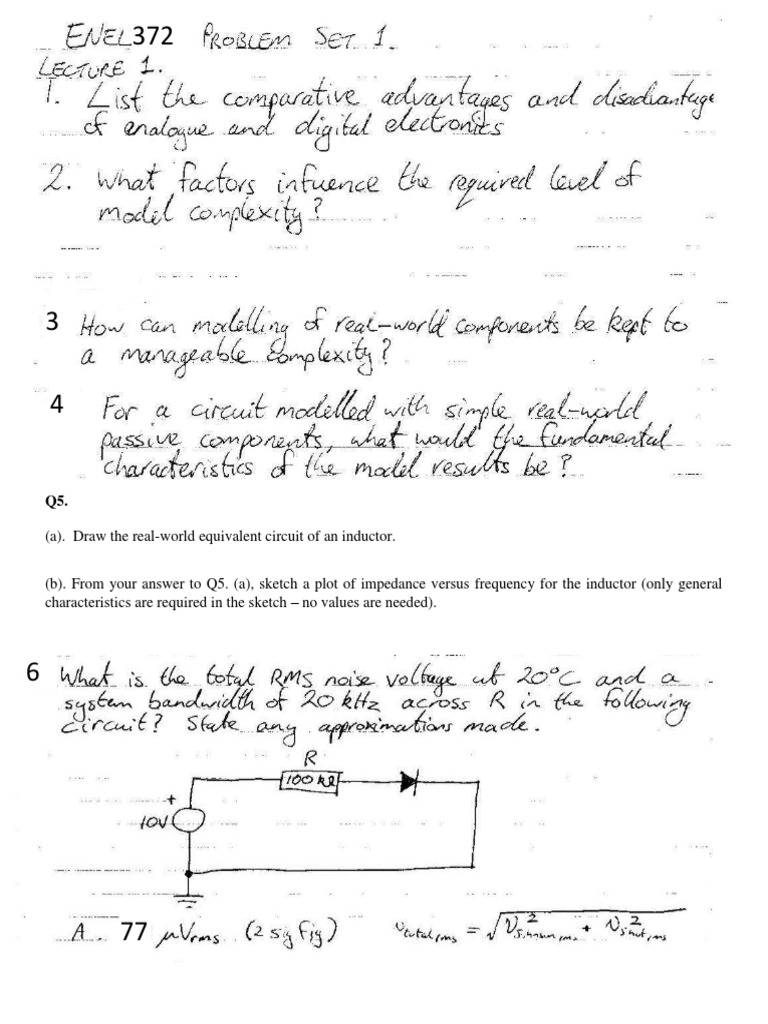 ENEL372 PROBLEM SET 1.
LECTURE 1.
1. List the comparative advantages and disadvantage
of analogue and digital electronics
2. What factors infuence the required level of
model complexity?
3 How can modelling of real-world components be kept to
a manageable complexity?
4 For a circuit modelled with simple real-world
passive components, what would the fundamental
characteristics of the model results be?
Q5.
(a). Draw the real-world equivalent circuit of an inductor.
(b). From your answer to Q5. (a), sketch a plot of impedance versus frequency for the inductor (only general
characteristics are required in the sketch – no values are needed).
6 What is the total RMS noise voltage at 20°C and a
system bandwidth of 20 kHz across R in the following
circuit? State any approximations made.
R
100 kΩ
+
10V
A. 77 µVrms (2 sig fig) Vtotal,rms = √